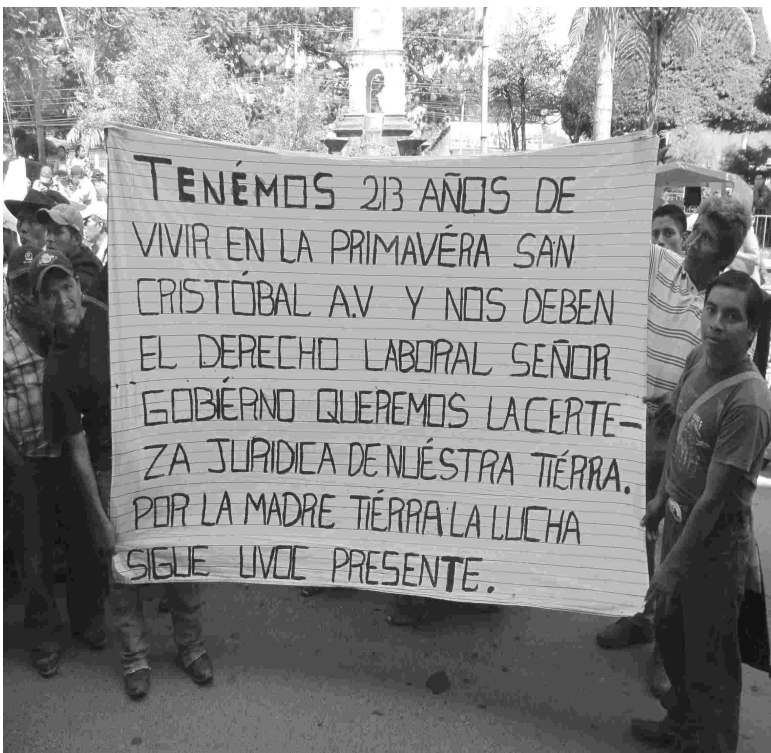 TENÉMOS 213 AÑOS DE
VIVIR EN LA PRIMAVÉRA SAN
CRISTÓBAL A.V Y NOS DEBEN
EL DERECHO LABORAL SEÑOR
GOBIÉRNO QUEREMOS LA CERTE-
ZA JURIDICA DE NUÉSTRA TIÉRRA.
POR LA MADRE TIÉRRA LA LUCHA
SIGUE UVOC PRESENTE.